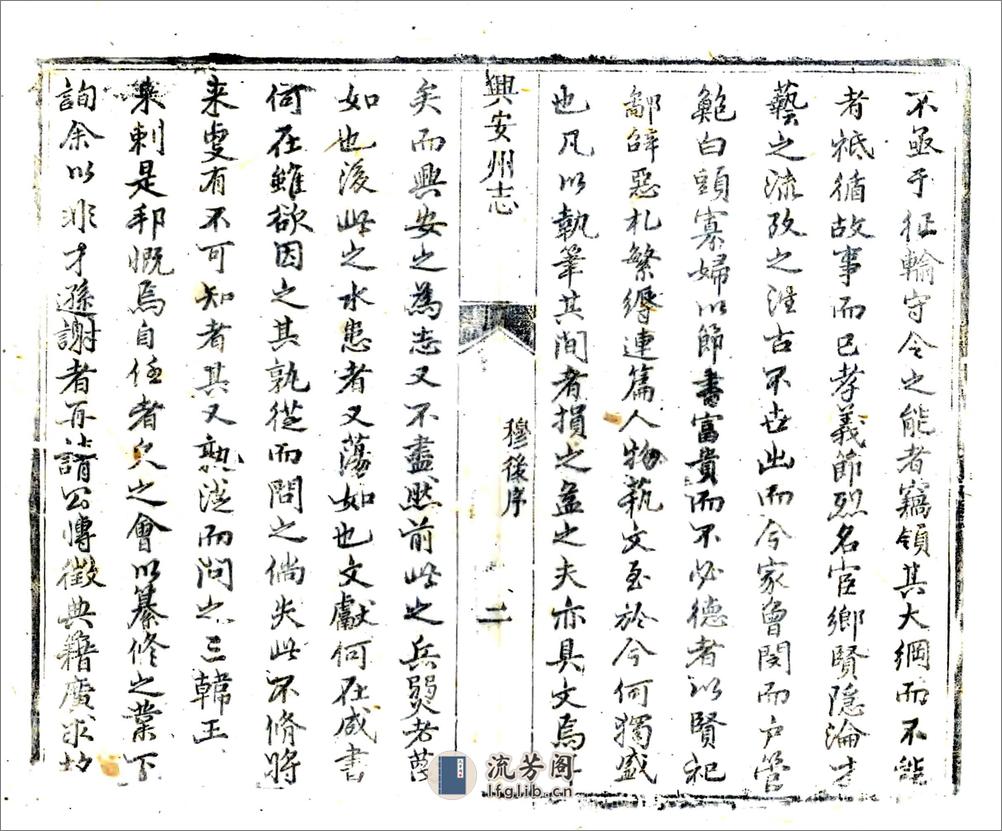 不亟于征輸守令之能者竊領其大綱而不能
者祗循故事而已孝義節烈名宦鄉賢隱淪才
藝之流攷之淮古不世出而今家曾閔而戶管
鮑白頭寡婦以節書富貴而不必德者以賢祀
鄙辭惡札繁縟連篇人物萟文至於今何獨盛
也凡以執筆其间者損之益之夫亦具文焉
興安州志
穆後序
二
矣而興安之為志又不盡然前此之兵燹者蕩
如也後此之水患者又蕩如也文獻何在咸書
何在雖欲因之其孰從而問之倘失此不脩將
来更有不可知者其又熟從而问之三韓王
來刺是邦慨焉自任者久之會以纂修之葉下
詢余以非才遜謝者再請公博徵典籍廣求
流芳阁
lfglib.cn